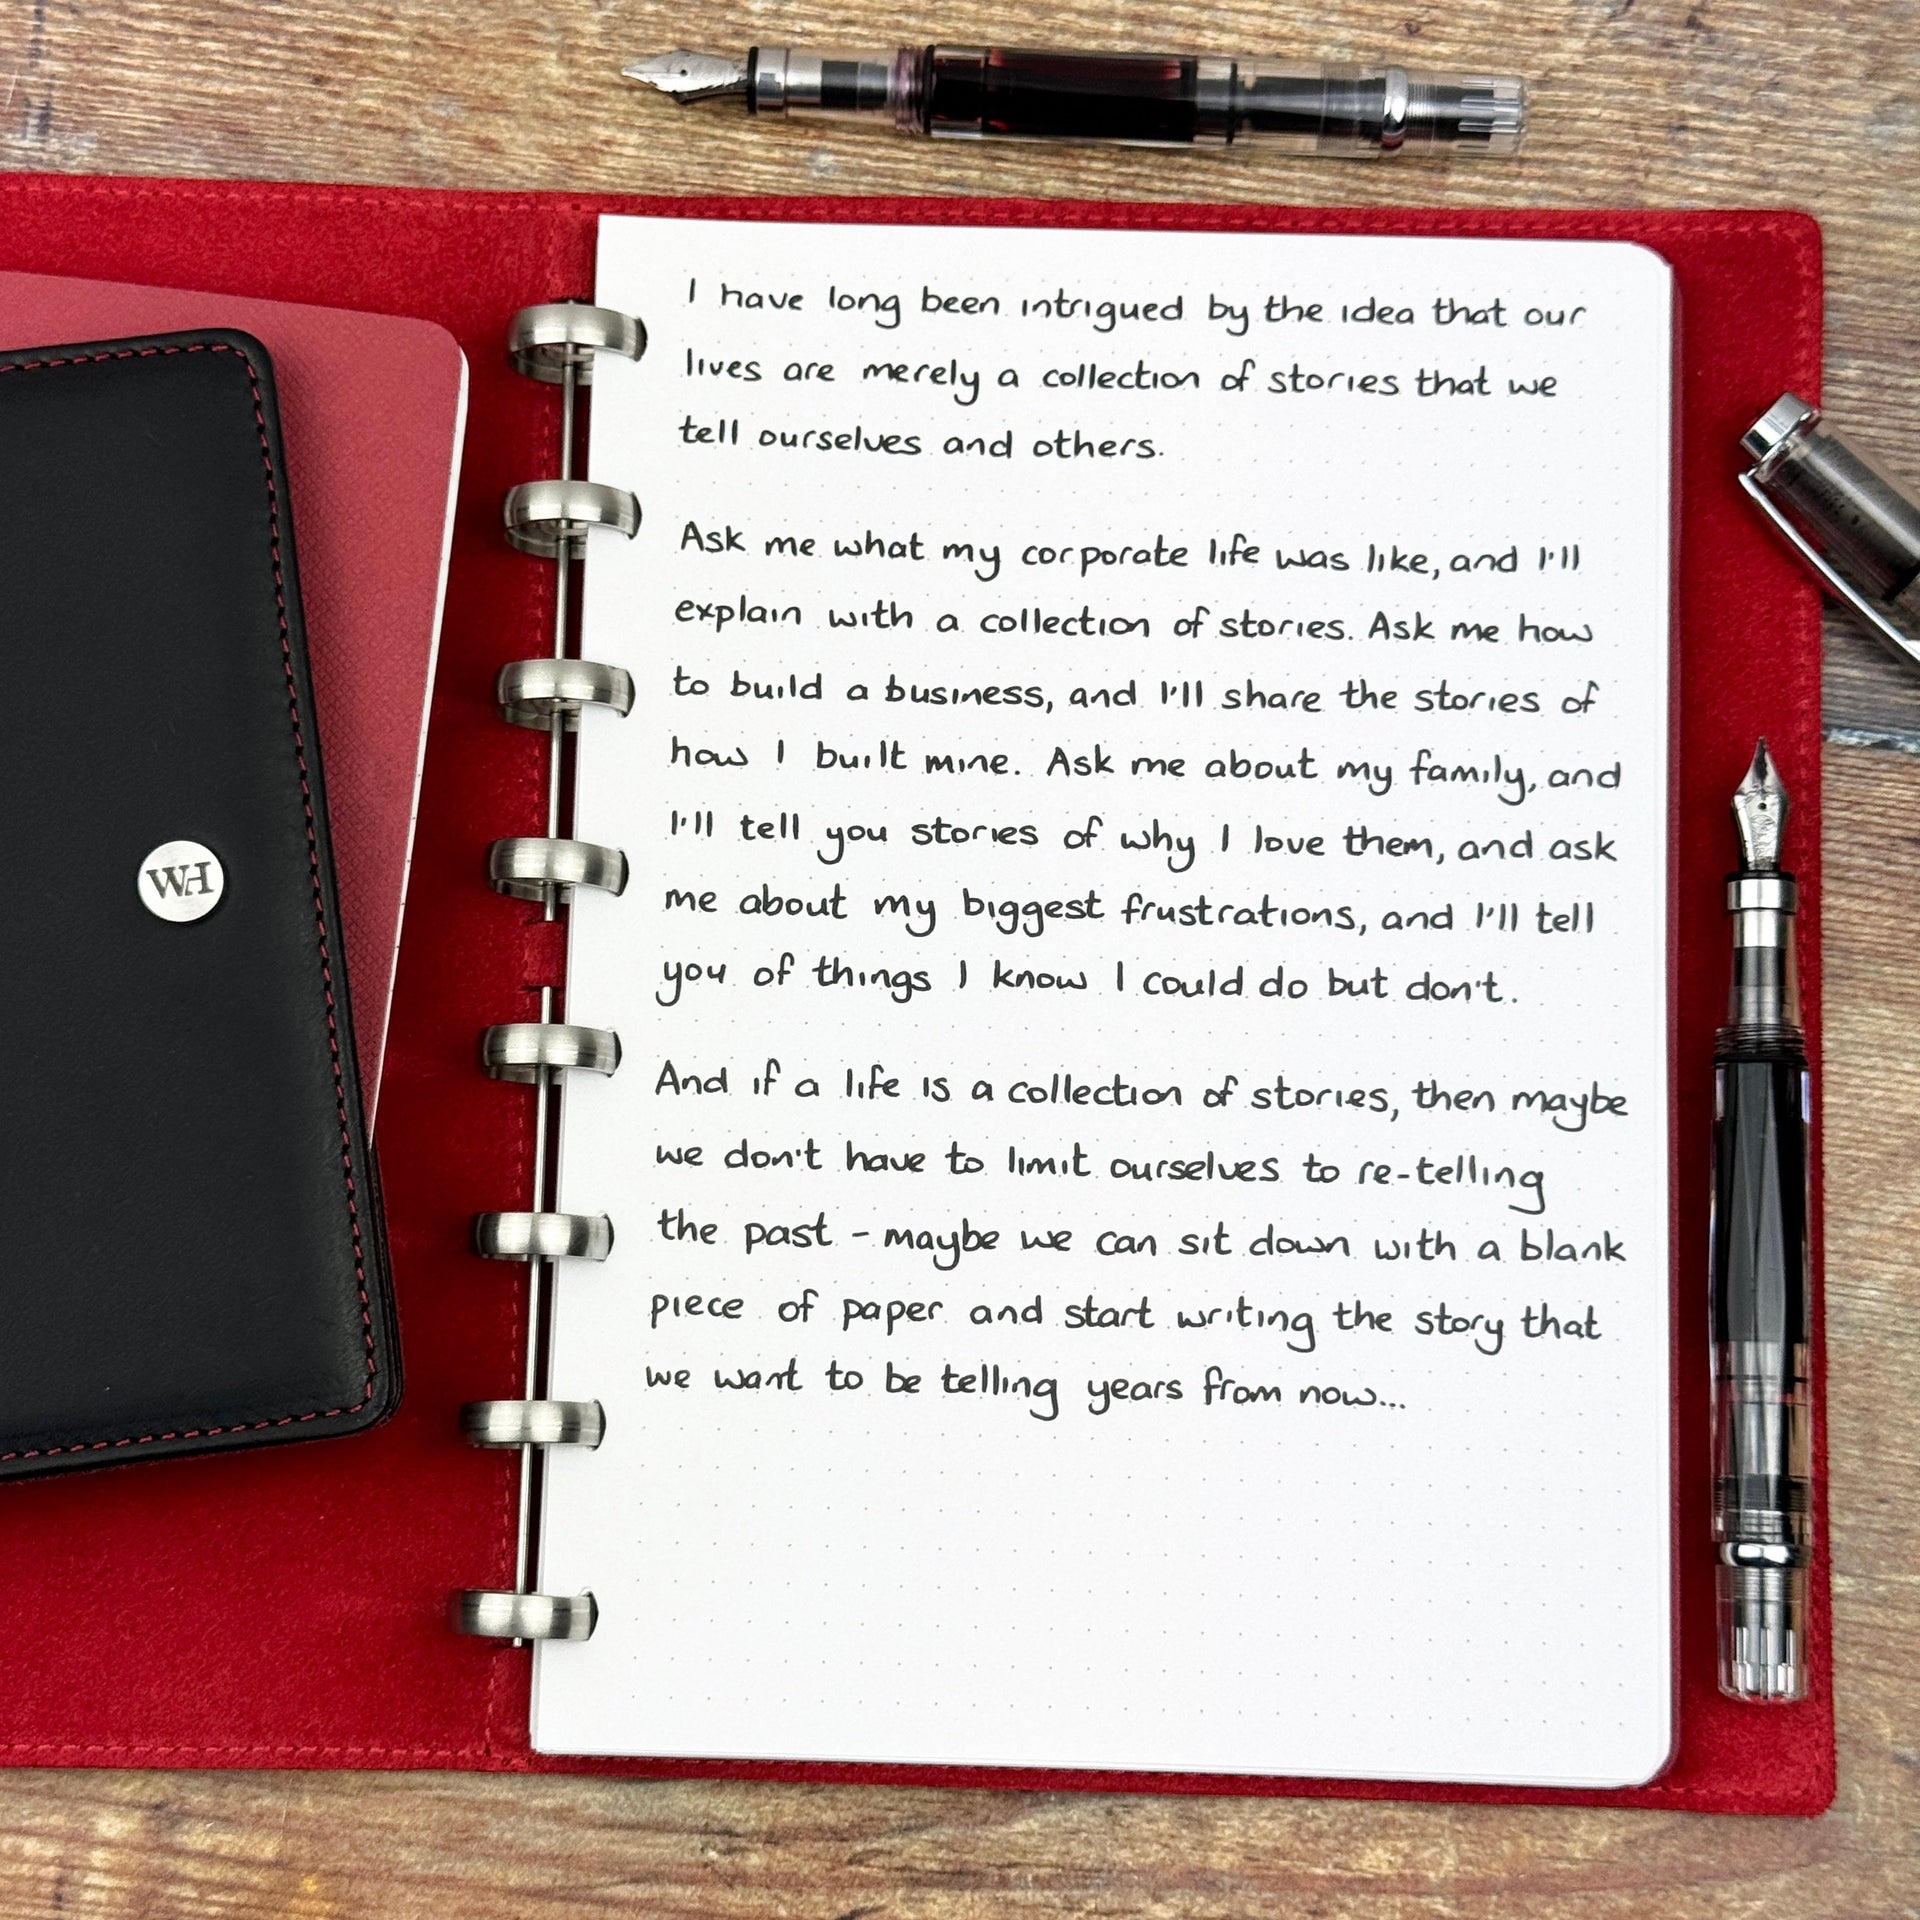 I have long been intrigued by the idea that our
lives are merely a collection of stories that we
tell ourselves and others.
Ask me what my corporate life was like, and I'll
explain with a collection of stories. Ask me how
to build a business, and I'll share the stories of
how I built mine. Ask me about my family, and
I'll tell you stories of why I love them, and ask
me about my biggest frustrations, and I'll tell
you of things I know I could do but don't.
And if a life is a collection of stories, then maybe
we don't have to limit ourselves to re-telling
the past - maybe we can sit down with a blank
piece of paper and start writing the story that
we want to be telling years from now...
WH